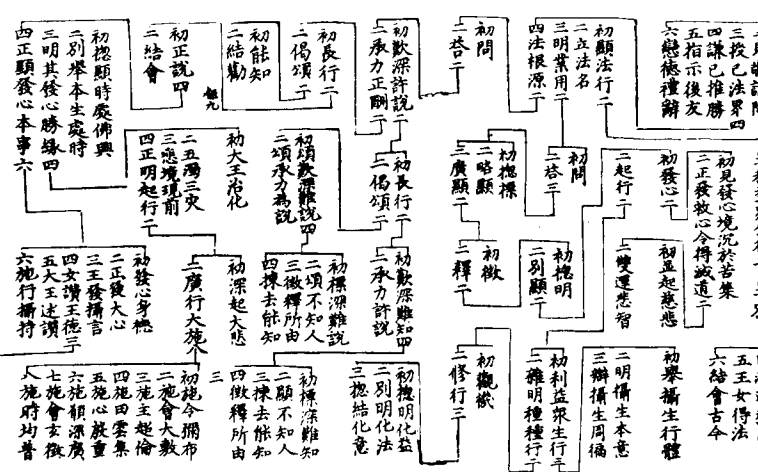 三投已法界四
四謙己推勝
五指示後友
六戀德禮辭
初顯法行二
二立法名
三明業用二
四法根源二
初問
二荅二
初歎深許說二
二承力正酬二
初長行二
二偈頌二
初能知
二結勸
初正說四
二結會
初揔顯時處佛興
二別舉本生處時
三明其發心勝緣四
四正顯發心本事六
初見發心境沉於苦集
二正發救心令得滅道二
初發心二
二起行二
初問
二荅三
初揔標
二略顯
三廣顯二
初長行二
二偈頌二
初頌歎深難說四
二頌承力為說
初大王治化
二五濁三災
三悲境現前
四正明起行二
初並起慈悲
二雙運悲智
初揔明
二別顯二
初徵
二釋二
初歎深難知四
二承力許說
初標深難說
二頌不知人
三徵釋所由
四揀去能知
初深起大悲
二廣行大施八
初發心身㮣
二正發大心
三王發攝言
四女讚王德三
五大王述讚
六施行攝持
五王女得法
六結會古今
初舉攝生行體
二明攝生本意
三辯攝生周徧
初利益衆生行三
二雜明種種行二
初觀機
二修行三
初揔明化益
二別明化法
三揔結化意
初標深難知
二顯不知人
三揀去能知
四徵釋所由
三
初施令彌布
二施會大數
三施主超倫
四施田雲集
五施心殷重
六施願深廣
七施會玄徵
八施時均普